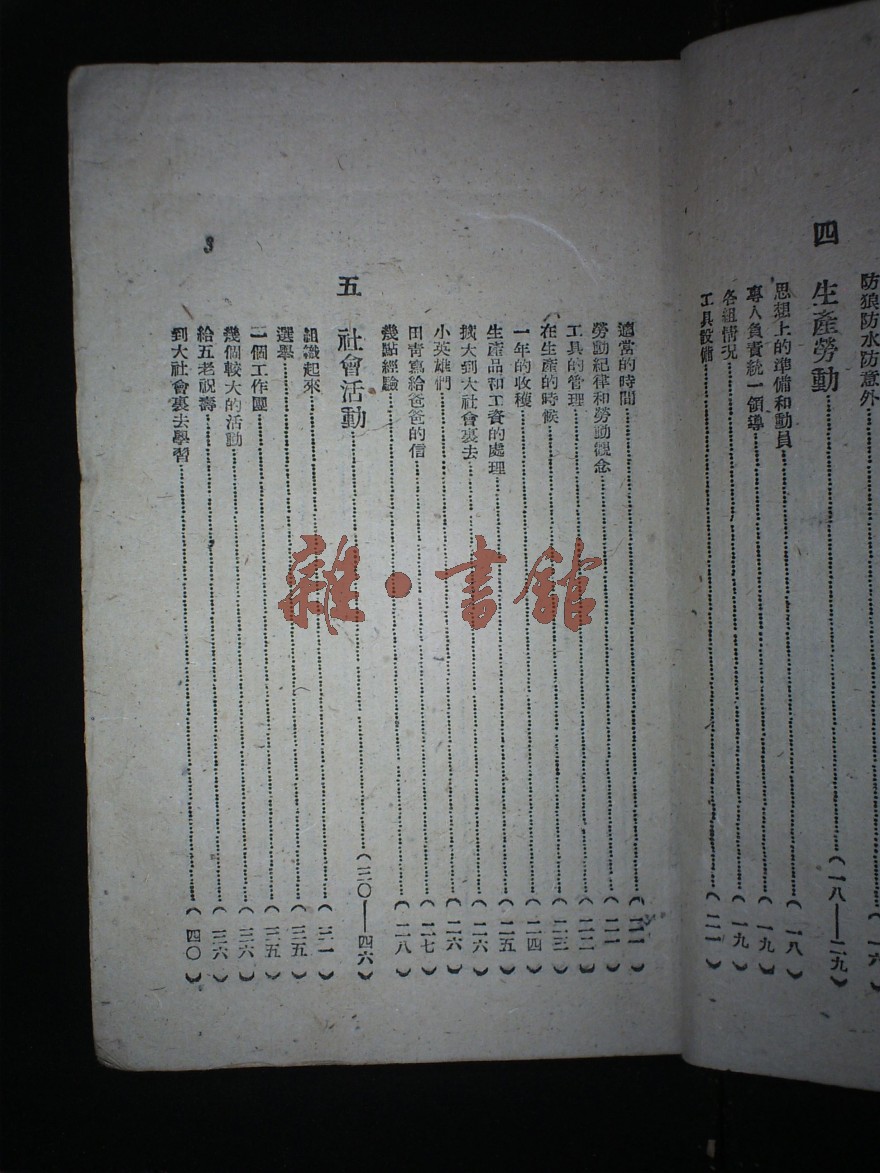 防狼防水防意外……(一六)
四 生產勞動……(一八——二九)
思想上的準備和動員……(一八)
專人負責統一領導……(一九)
各組情況……(一九)
工具設備……(二一)
適當的時間……(二一)
勞動紀律和勞動觀念……(二一)
工具的管理……(二二)
在生產的時候……(二三)
一年的收穫……(二四)
生產品和工資的處理……(二五)
擴大到大社會裏去……(二六)
小英雄們……(二六)
田青寫給爸爸的信……(二七)
幾點經驗……(二八)
五 社會活動……(三〇——四六)
組織起來……(三一)
選舉……(三五)
一個工作團……(三五)
幾個較大的活動……(三六)
給五老祝壽……(三六)
到大社會裏去學習……(四〇)
3
雜·書館